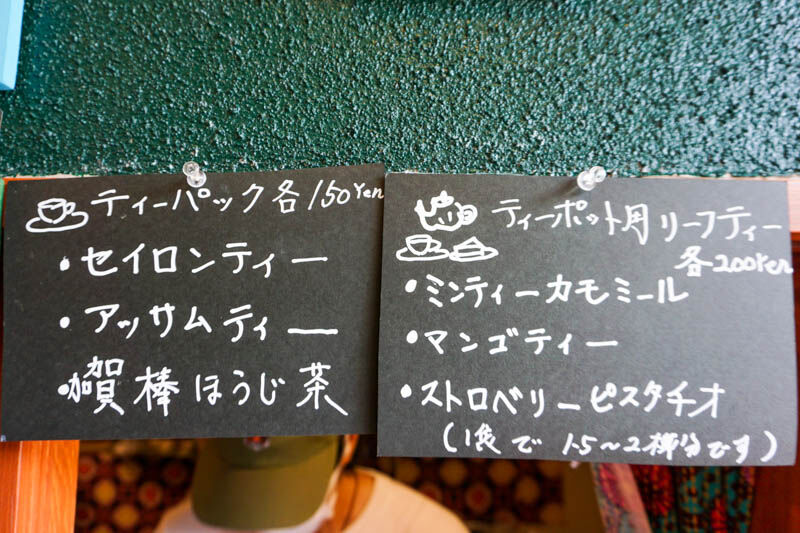 ティーパック各150Yen
・セイロンティー
・アッサムティー
・加賀棒ほうじ茶
ティーポット用リーフティー
各200Yen
・ミンティーカモミール
・マンゴティー
・ストロベリーピスタチオ
(1袋で1.5〜2杯分です)